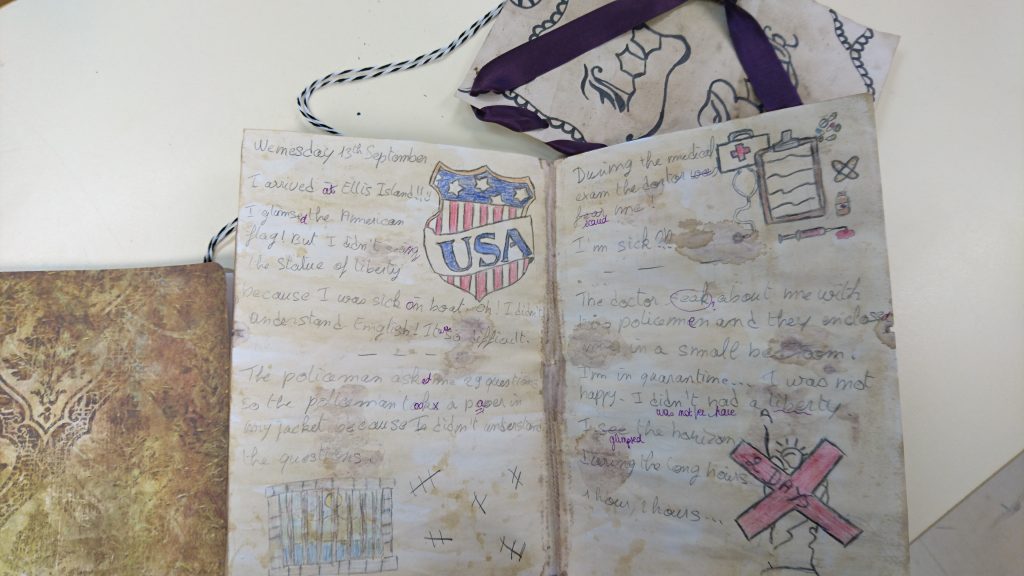 Wemesday 13th September
I arrived at Ellis Island!!
I glimsed the American
flag! But I didn't
the Statue of liberty
because I was sick on boat. Oh! I didn't
understand English! It so difficult.
The policeman asked me 29 questions
so the policeman a paper in
my jacket because I didn't understand
the questions.
USA
During the medical
exam the doctor
said me!
I'm sick!!!
The doctor about me with
two policemen and they enclose
me in a small bedroom.
I'm in quarantine... I was not
happy. I didn't had a liberty.
was not have
I see the horizon
glimpsed
During the long hours
1 hour, 2 hours...